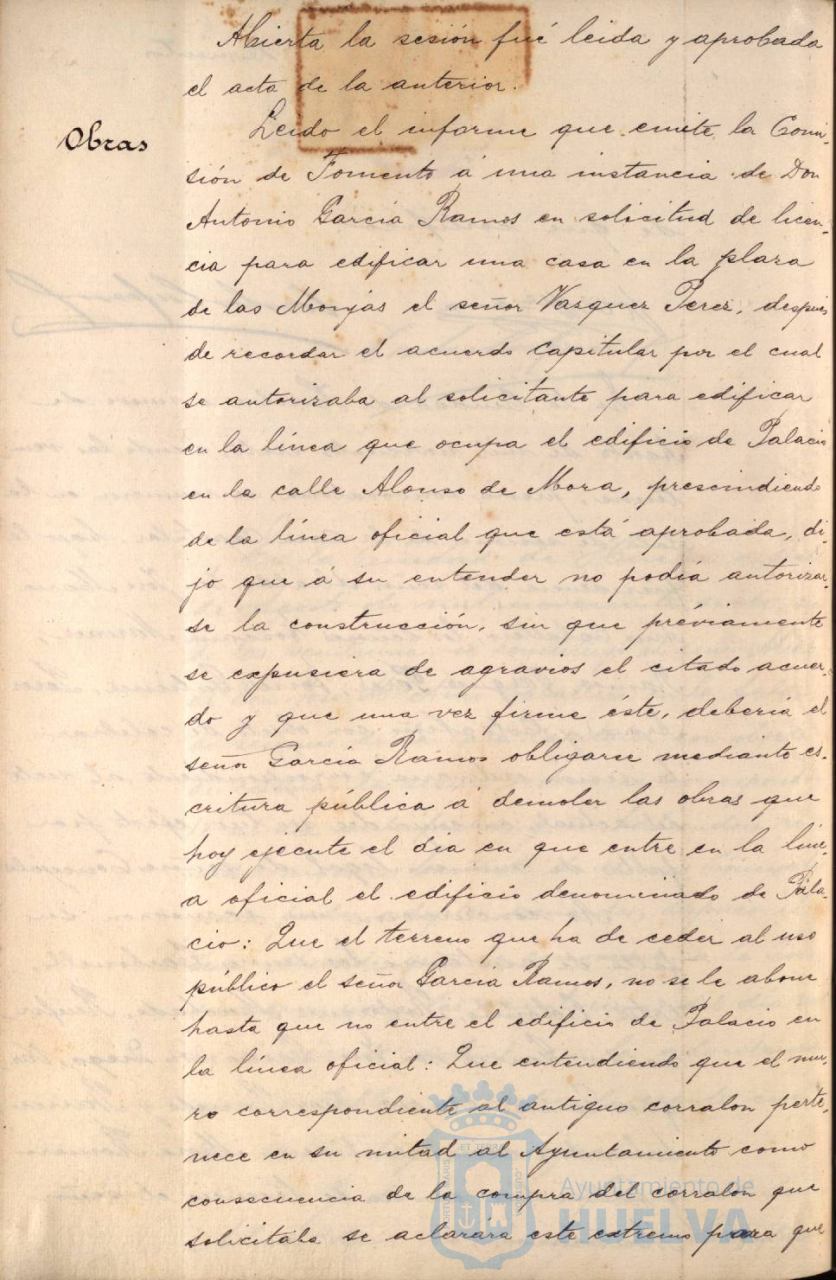 Abierta la sesión fué leida y aprobada
el acta de la anterior.
Obras
Leido el informe que emite la Comi-
sión de Fomento á una instancia de Don
Antonio García Ramos en solicitud de licen-
cia para edificar una casa en la plaza
de las Monjas el señor Vazquez Perez, despues
de recordar el acuerdo capitular por el cual
se autorizaba al solicitante para edificar
en la línea que ocupa el edificio de Palacio
en la calle Alonso de Mora, prescindiendo
de la línea oficial que está aprobada, di-
jo que á su entender no podía autorizar-
se la construcción, sin que préviamente
se expusiera de agravios el citado acuer-
do y que una vez firme éste, debería el
señor García Ramos obligarse mediante es-
critura pública á demoler las obras que
hoy ejecute el día en que entre en la líne-
a oficial el edificio denominado de Pala-
cio: Que el terreno que ha de ceder al uso
público el señor García Ramos, no se le abone
hasta que no entre el edificio de Palacio en
la línea oficial: Que entendiendo que el mu-
ro correspondiente al antiguo corralon perte-
nece en su mitad al Ayuntamiento como
consecuencia de la compra del corralón que
solicitaba se aclarára este extremo para que
Ayuntamiento de
HUELVA